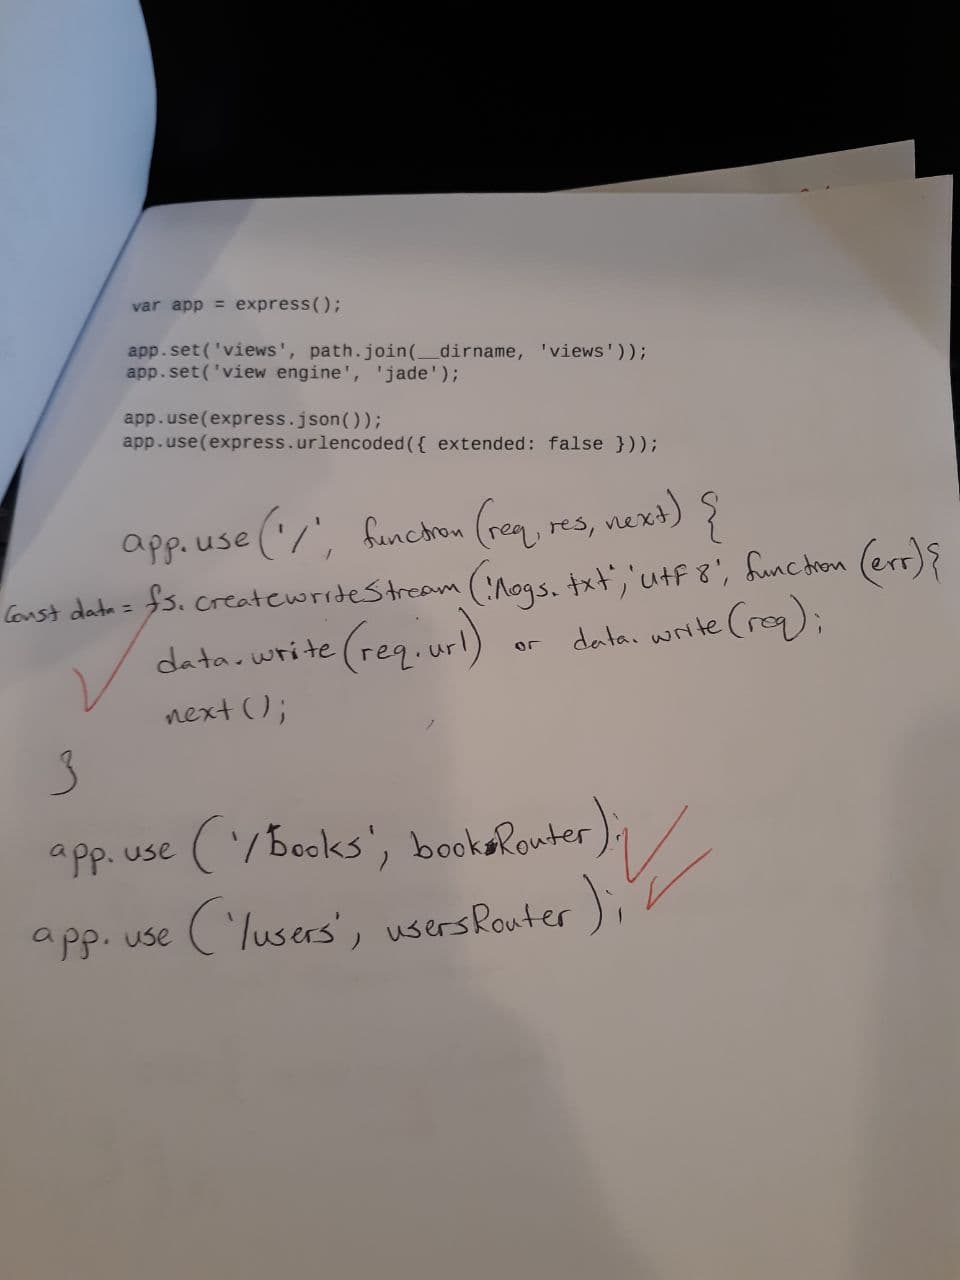 var app = express();
app.set('views', path.join(__dirname, 'views'));
app.set('view engine', 'jade');
app.use(express.json());
app.use(express.urlencoded({ extended: false }));
app.use('/', function(req, res, next) {
const data = fs.createwriteStream('logs.txt','utf8', function (err){
data.write(req.url) or data.write(req);
next();
}
app.use('/books', booksRouter);
app.use('/users', usersRouter);